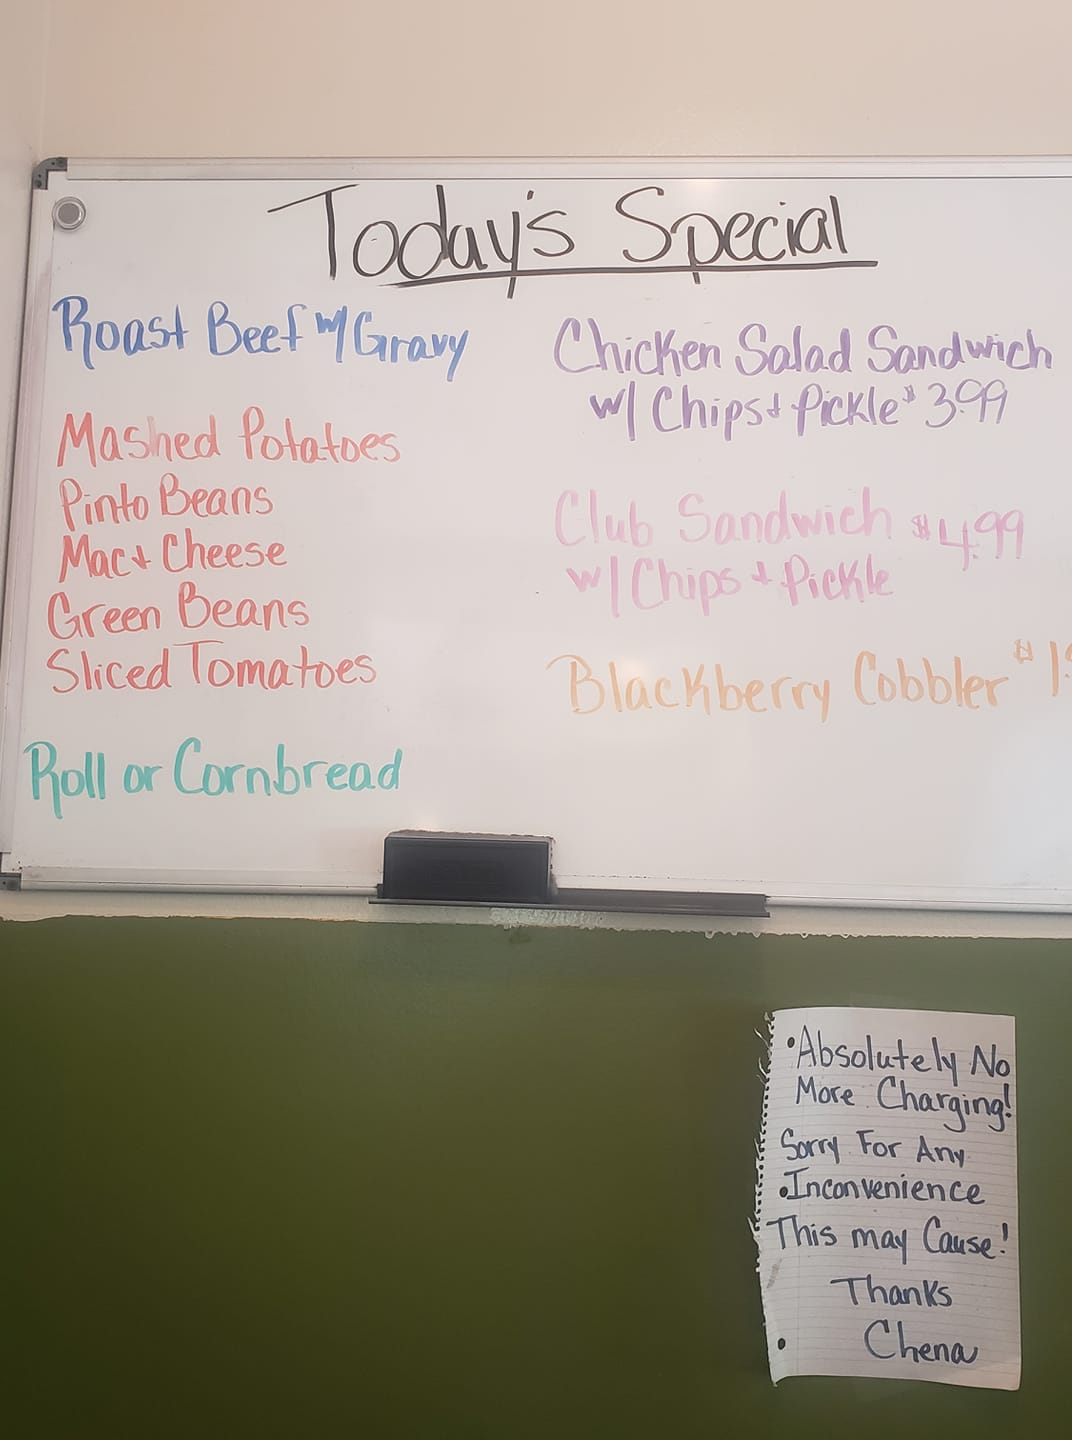 Today's Special
Roast Beef w/ Gravy
Mashed Potatoes
Pinto Beans
Mac + Cheese
Green Beans
Sliced Tomatoes
Roll or Cornbread
Chicken Salad Sandwich
w/ Chips + Pickle $3.99
Club Sandwich $4.99
w/ Chips + Pickle
Blackberry Cobbler $1.
Absolutely No
More Charging!
Sorry For Any
Inconvenience
This may Cause!
Thanks
Chena